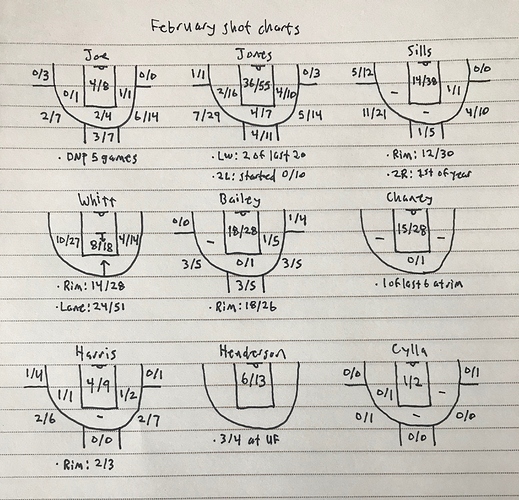 February shot charts
Joe
0/3 4/8 0/0
0/1 1/1
2/7 2/4 6/14
3/7
· DNP 5 games
Jones
1/1 36/55 0/3
2/16 4/10
7/29 4/7 5/14
4/11
· LW: 2 of last 20
· 2L: started 0/10
Sills
5/12 14/38 0/0
- 1/1
11/21 - 4/10
1/5
· Rim: 12/30
· 2R: 1st of year
Whitt
10/27 8/18 4/14
· Rim: 14/28
· Lane: 24/51
Bailey
0/0 18/28 1/4
- 1/5
3/5 0/1 3/5
3/5
· Rim: 18/26
Chaney
- 15/28 -
0/1
· 1 of last 6 at rim
Harris
1/4 4/9 0/1
1/1 1/2
2/6 - 2/7
0/0
· Rim: 2/3
Henderson
6/13
· 3/4 at UF
Cylla
0/0 1/2 0/1
0/1 -
0/1 - 0/0
0/0